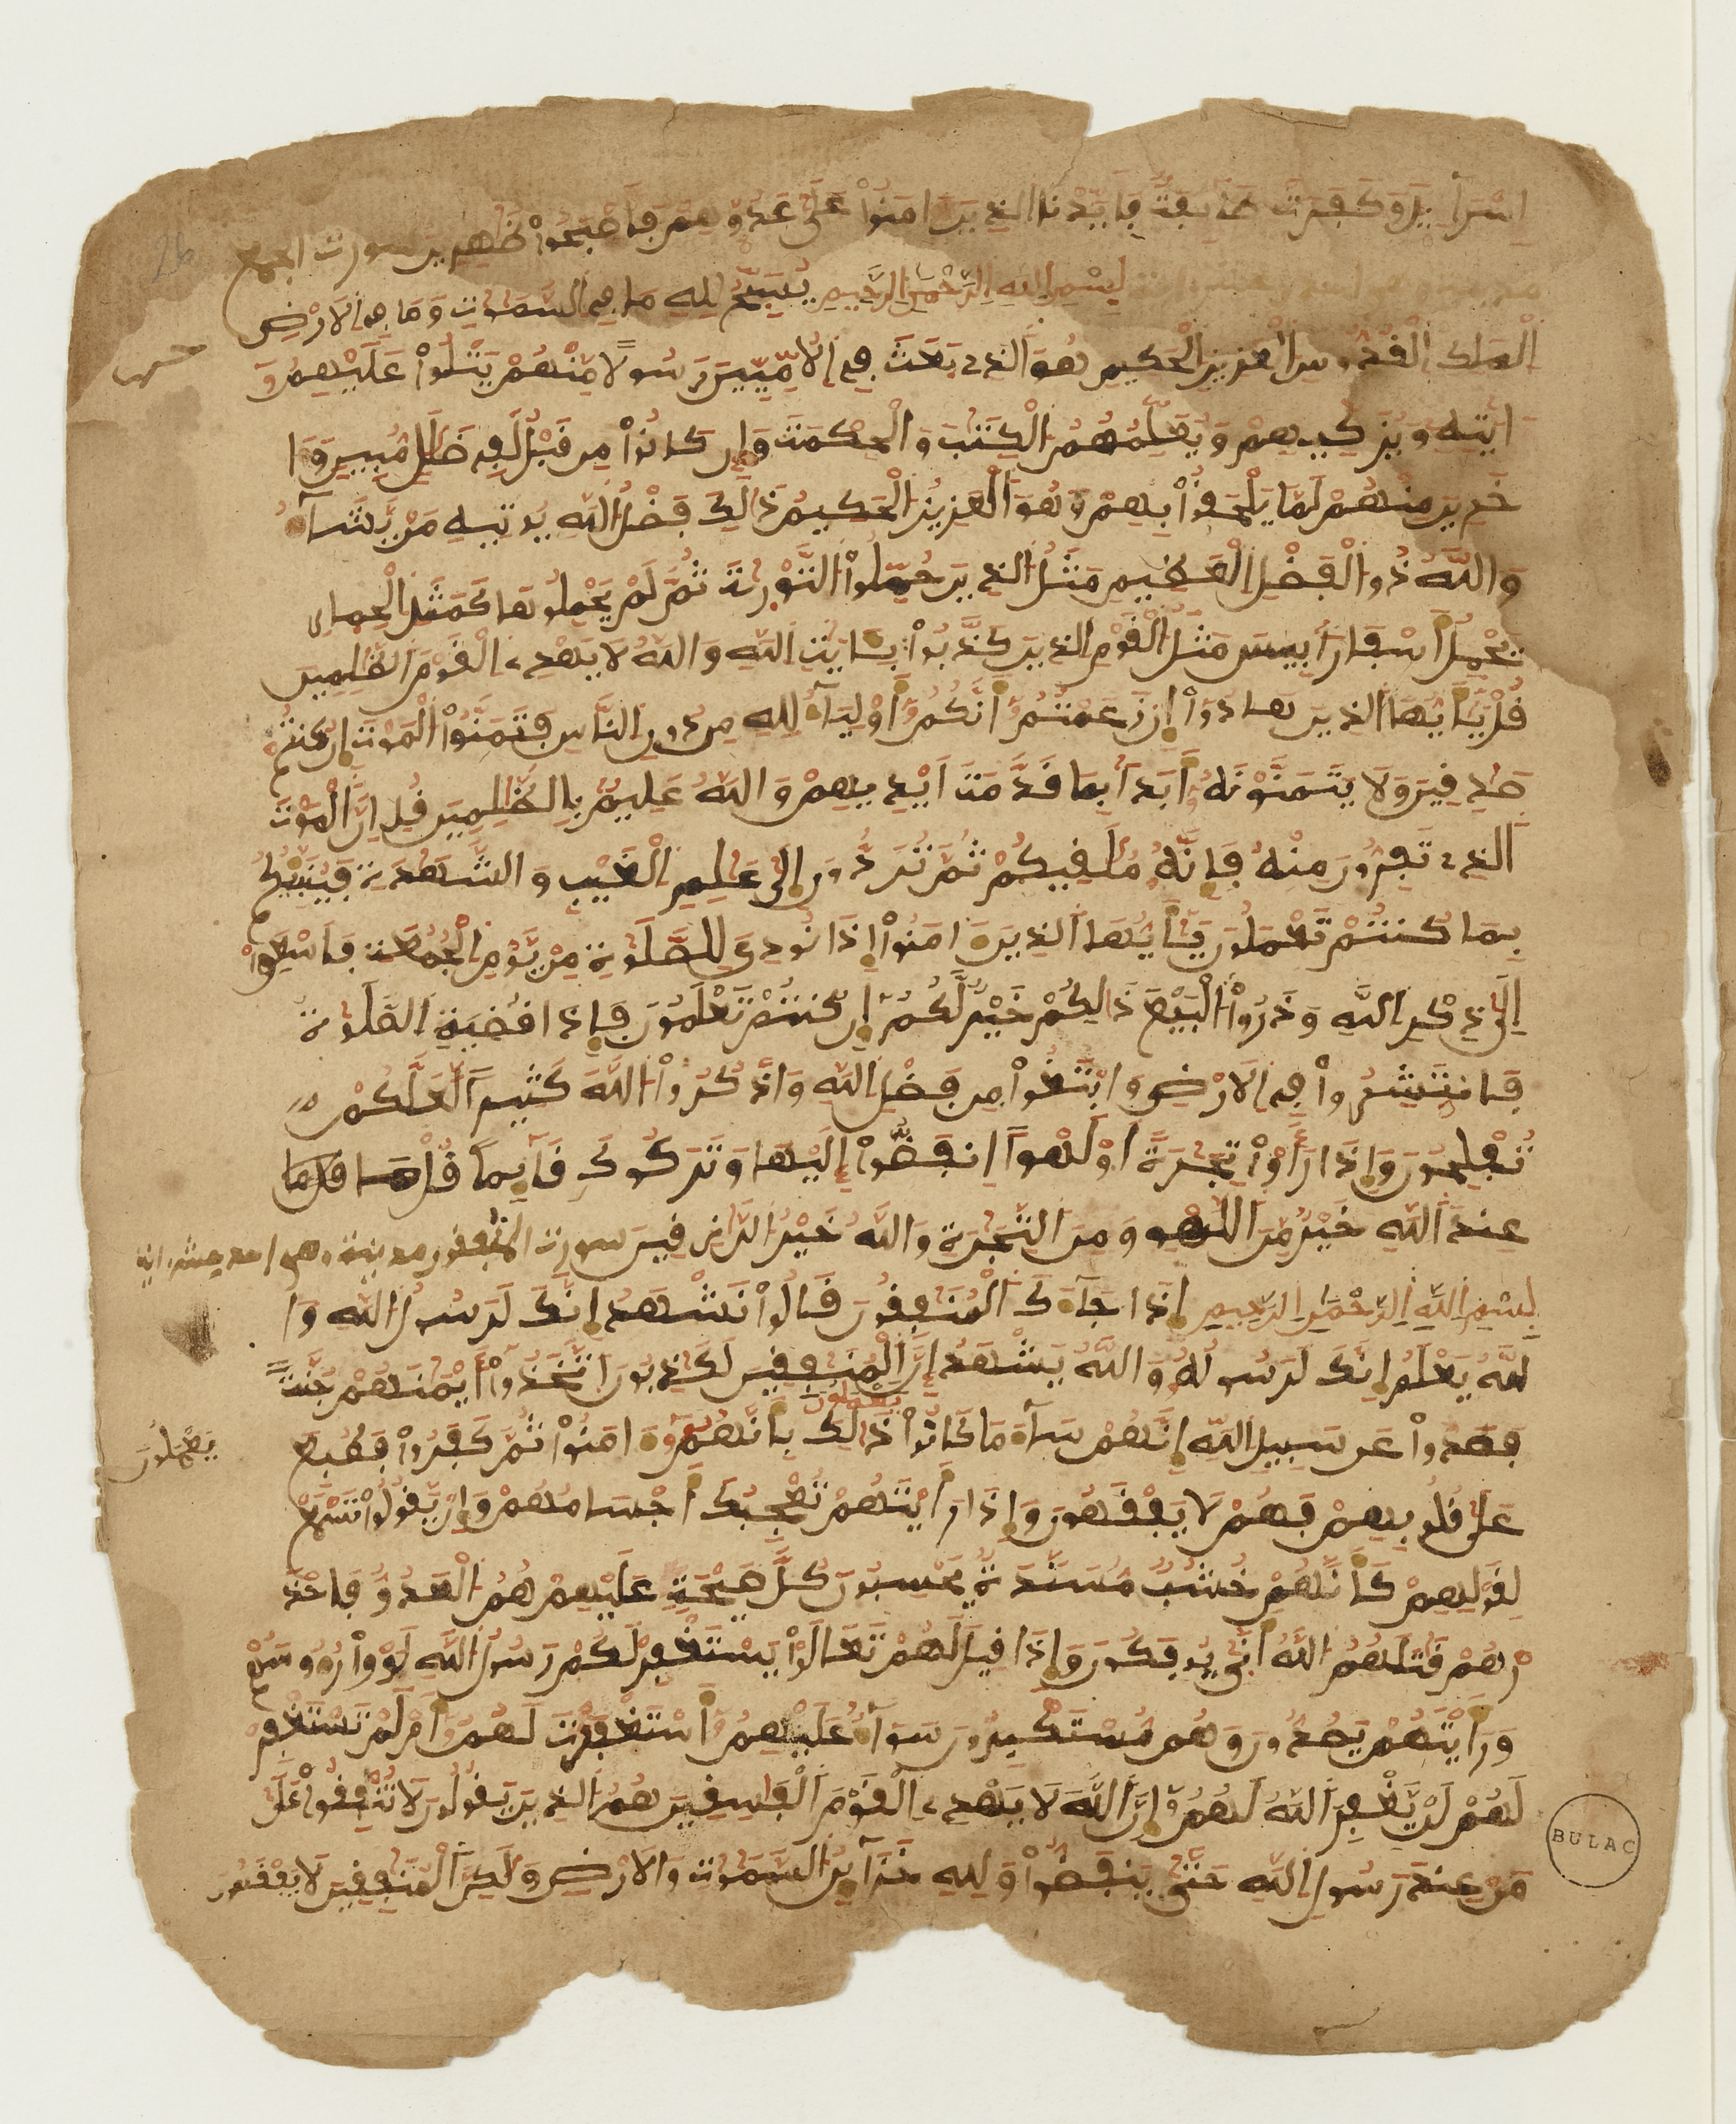 اِسْرَآءِيلَ وَكَفَرَت طَّآئِفَةٌ فَأَيَّدْنَا الذِينَ ءَامَنُواْ عَلَىٰ عَدُوِّهِمْ فَأَصْبَحُواْ ظَٰهِرِينَ سورت الجمعة
بِسْمِ اللهِ الرَّحْمَٰنِ الرَّحِيمِ يُسَبِّحُ لِلهِ مَا فِے السَّمَٰوَٰتِ وَمَا فِے الَارْضِ
الْمَلِكِ الْقُدُّوسِ الْعَزِيزِ الْحَكِيمِ هُوَ الذِے بَعَثَ فِے الُامِّيِّينَ رَسُولًا مِّنْهُمْ يَتْلُواْ عَلَيْهِمُۥٓ
ءَايَٰتِهِ وَيُزَكِّيهِمْ وَيُعَلِّمُهُمُ الْكِتَٰبَ وَالْحِكْمَتَ وَإِن كَانُواْ مِن قَبْلُ لَفِے ضَلَٰلٍ مُّبِينٍ وَءَا
خَرِينَ مِنْهُمْ لَمَّا يَلْحَقُواْ بِهِمْ وَهُوَ الْعَزِيزُ الْحَكِيمُ ذَٰلِكَ فَضْلُ اللهِ يُوتِيهِ مَنْ يَّشَآءُ
وَاللهُ ذُو الْفَضْلِ الْعَظِيمِ مَثَلُ الذِينَ حُمِّلُواْ التَّوْرَىٰتَ ثُمَّ لَمْ يَحْمِلُوهَا كَمَثَلِ الْحِمارِ
يَحْمِلُ أَسْفَارًا بِيسَ مَثَلُ الْقَوْمِ الذِينَ كَذَّبُواْ بِـَٔايَٰتِ اللهِ وَاللهُ لَا يَهْدِے الْقَوْمَ الظَّٰلِمِينَ
قُلْ يَٰٓأَيُّهَا الذِينَ هَادُوٓاْ إِن زَعَمْتُمُۥٓ أَنَّكُمُۥٓ أَوْلِيَآءُ لِلهِ مِن دُونِ النَّاسِ فَتَمَنَّوُاْ الْمَوْتَ إِن كُنتُمْ
صَٰدِقِينَ وَلَا يَتَمَنَّوْنَهُۥٓ أَبَدًا بِمَا قَدَّمَتَ اَيْدِيهِمْ وَاللهُ عَلِيمٌ بِالظَّٰلِمِينَ قُلِ اِنَّ الْمَوْتَ
الذِے تَفِرُّونَ مِنْهُ فَإِنَّهُ مُلَٰقِيكُمْ ثُمَّ تُرَدُّونَ إِلَىٰ عَٰلِمِ الْغَيْبِ وَالشَّهَٰدَةِ فَيُنَبِّئُكُم
بِمَا كُنتُمْ تَعْمَلُونَ يَٰٓأَيُّهَا الذِينَ ءَامَنُوٓاْ إِذَا نُودِيَ لِلصَّلَوٰةِ مِنْ يَّوْمِ الْجُمُعَةِ فَاسْعَوِاْ
اِلَىٰ ذِكْرِ اللهِ وَذَرُواْ الْبَيْعَ ذَٰلِكُمْ خَيْرٌ لَّكُمُۥٓ إِن كُنتُمْ تَعْلَمُونَ فَإِذَا قُضِيَةِ الصَّلَوٰةُ
فَانتَشِرُواْ فِے الَارْضِ وَابْتَغُواْ مِن فَضْلِ اللهِ وَاذْكُرُواْ اللهَ كَثِيرًا لَّعَلَّكُمْ
تُفْلِحُونَ وَإِذَا رَأَوْاْ تِجَٰرَةً اَوْ لَهْوًا اِنفَضُّوٓاْ إِلَيْهَا وَتَرَكُوكَ قَآئِمًا قُلْ مَا
عِندَ اللهِ خَيْرٌ مِّنَ اللَّهْوِ وَمِنَ التِّجَٰرَةِ وَاللهُ خَيْرُ الرَّٰزِقِينَ سورت المنفقون مدنية وهي احد عشر اية
بِسْمِ اللهِ الرَّحْمَٰنِ الرَّحِيمِ إِذَا جَآءَكَ الْمُنَٰفِقُونَ قَالُواْ نَشْهَدُ إِنَّكَ لَرَسُولُ اللهِ وَا
للهُ يَعْلَمُ إِنَّكَ لَرَسُولُهُ وَاللهُ يَشْهَدُ إِنَّ الْمُنَٰفِقِينَ لَكَٰذِبُونَ اَتَّخَذُوٓاْ أَيْمَٰنَهُمْ جُنَّةً
فَصَدُّواْ عَن سَبِيلِ اللهِ إِنَّهُمْ سَآءَ مَا كَانُواْ يَعْمَلُونَ ذَٰلِكَ بِأَنَّهُمُۥٓ ءَامَنُواْ ثُمَّ كَفَرُواْ فَطُبِعَ
يَعْمَلُونَ
عَلَىٰ قُلُوبِهِمْ فَهُمْ لَا يَفْقَهُونَ وَإِذَا رَأَيْتَهُمْ تُعْجِبُكَ أَجْسَامُهُمْ وَإِنْ يَّقُولُواْ تَسْمَعْ
لِقَوْلِهِمْ كَأَنَّهُمْ خُشُبٌ مُّسَنَّدَةٌ يَحْسِبُونَ كُلَّ صَيْحَةٍ عَلَيْهِمْ هُمُ الْعَدُوُّ فَاحْذَ
رْهُمْ قَٰتَلَهُمُ اللهُ أَنَّىٰ يُوفَكُونَ وَإِذَا قِيلَ لَهُمْ تَعَالَوْاْ يَسْتَغْفِرْ لَكُمْ رَسُولُ اللهِ لَوَوْاْ رُءُوسَهُمْ
وَرَأَيْتَهُمْ يَصُدُّونَ وَهُم مُّسْتَكْبِرُونَ سَوَآءٌ عَلَيْهِمُۥٓ أَسْتَغْفَرْتَ لَهُمُۥٓ أَمْ لَمْ تَسْتَغْفِرْ
لَهُمْ لَنْ يَّغْفِرَ اللهُ لَهُمُۥٓ إِنَّ اللهَ لَا يَهْدِے الْقَوْمَ الْفَٰسِقِينَ هُمُ الذِينَ يَقُولُونَ لَا تُنفِقُواْ عَلَىٰ
مَنْ عِندَ رَسُولِ اللهِ حَتَّىٰ يَنفَضُّواْ وَلِلهِ خَزَآئِنُ السَّمَٰوَٰتِ وَالَارْضِ وَلَٰكِنَّ الْمُنَٰفِقِينَ لَا يَفْقَهُونَ
BULAC